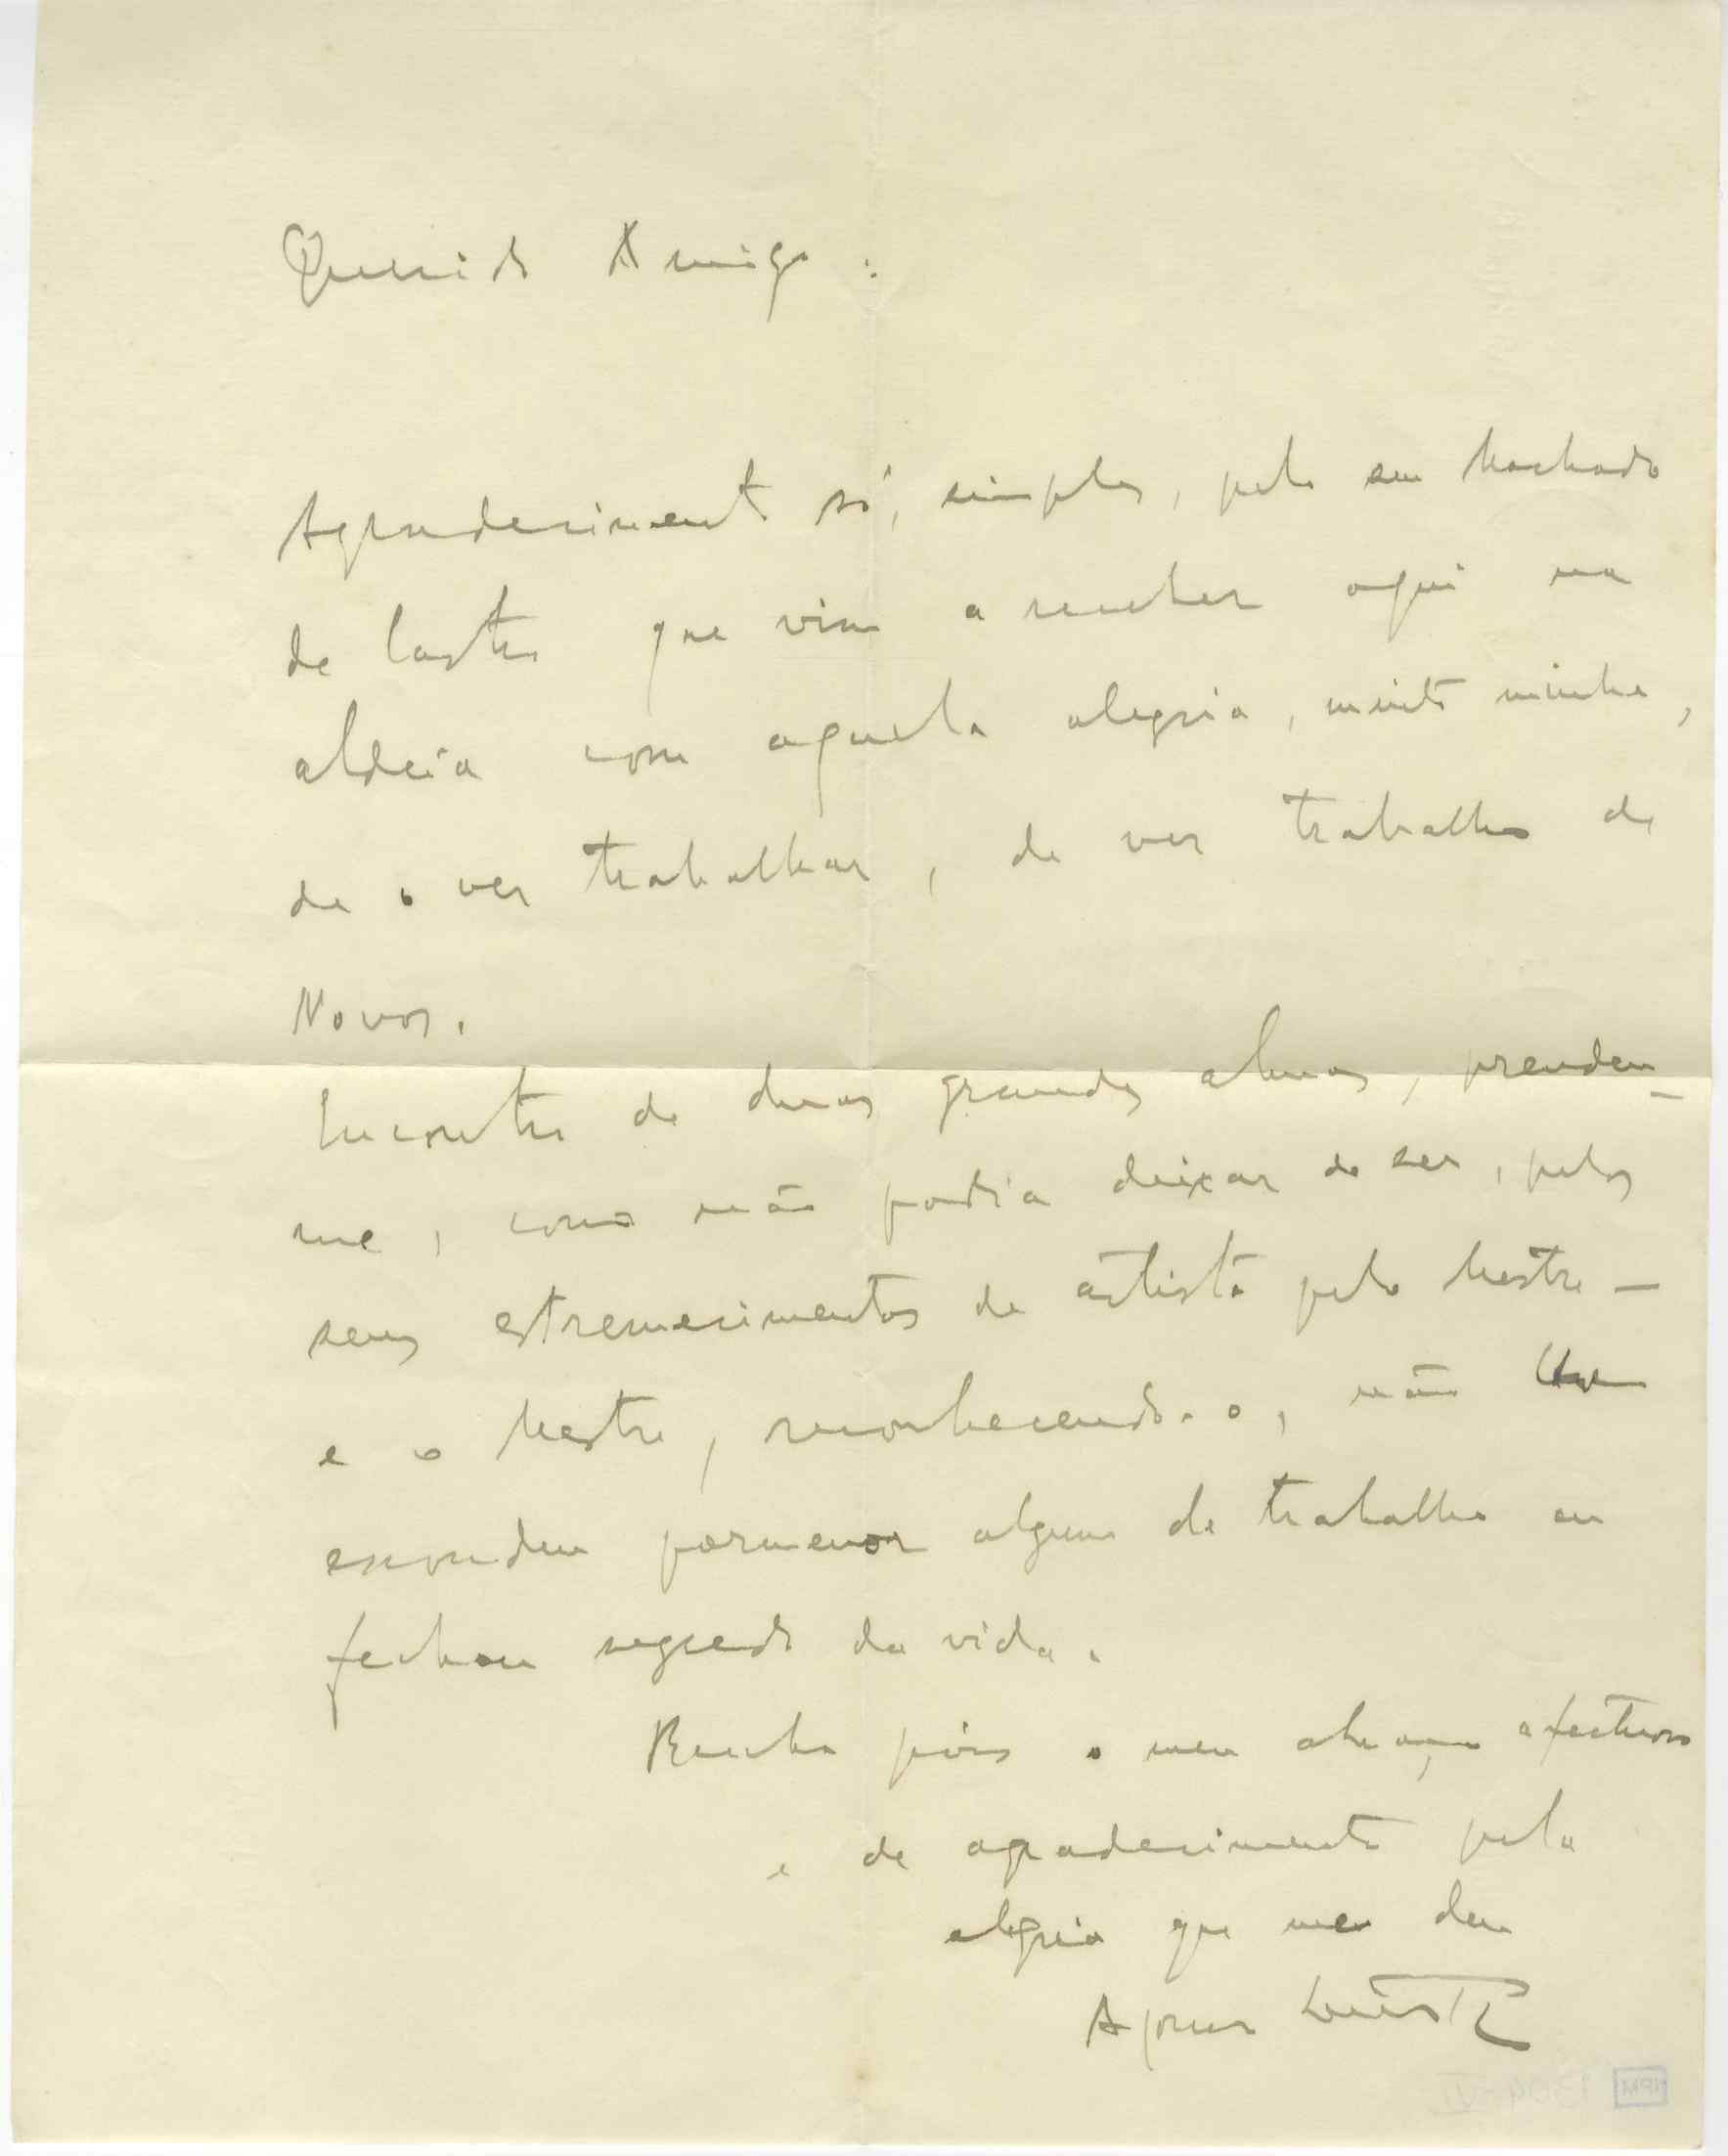 Querido Amigo:
Agradecimento só, simples, pelo seu Machado
de Castro que vim a receber aqui na
aldeia com aquela alegria, muito minha,
de o ver trabalhar, de ver trabalho de
Novos.
Encontro de duas grandes almas, prendeu-
me, como não podia deixar de ser, pelos
seus estremecimentos de artista pelo Mestre —
e o Mestre, reconhecendo-o, não lhe
escondeu pormenor algum de trabalho ou
fechou segredo da vida.
Receba pois o meu abraço afectuoso
e de agradecimento pela
alegria que me deu